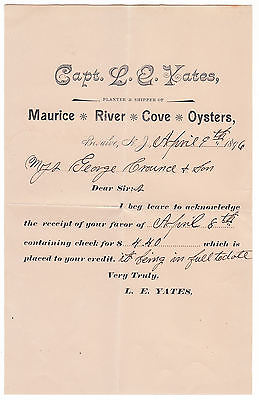 Capt. L. E. Yates,
PLANTER & SHIPPER OF
Maurice * River * Cove * Oysters,
N. J. April 9th 1896
George & Son
Dear Sirs
I beg leave to acknowledge
the receipt of your favor of April 8th
containing check for $ 4.40 which is
placed to your credit. it being in full to date
Very Truly,
L. E. YATES,